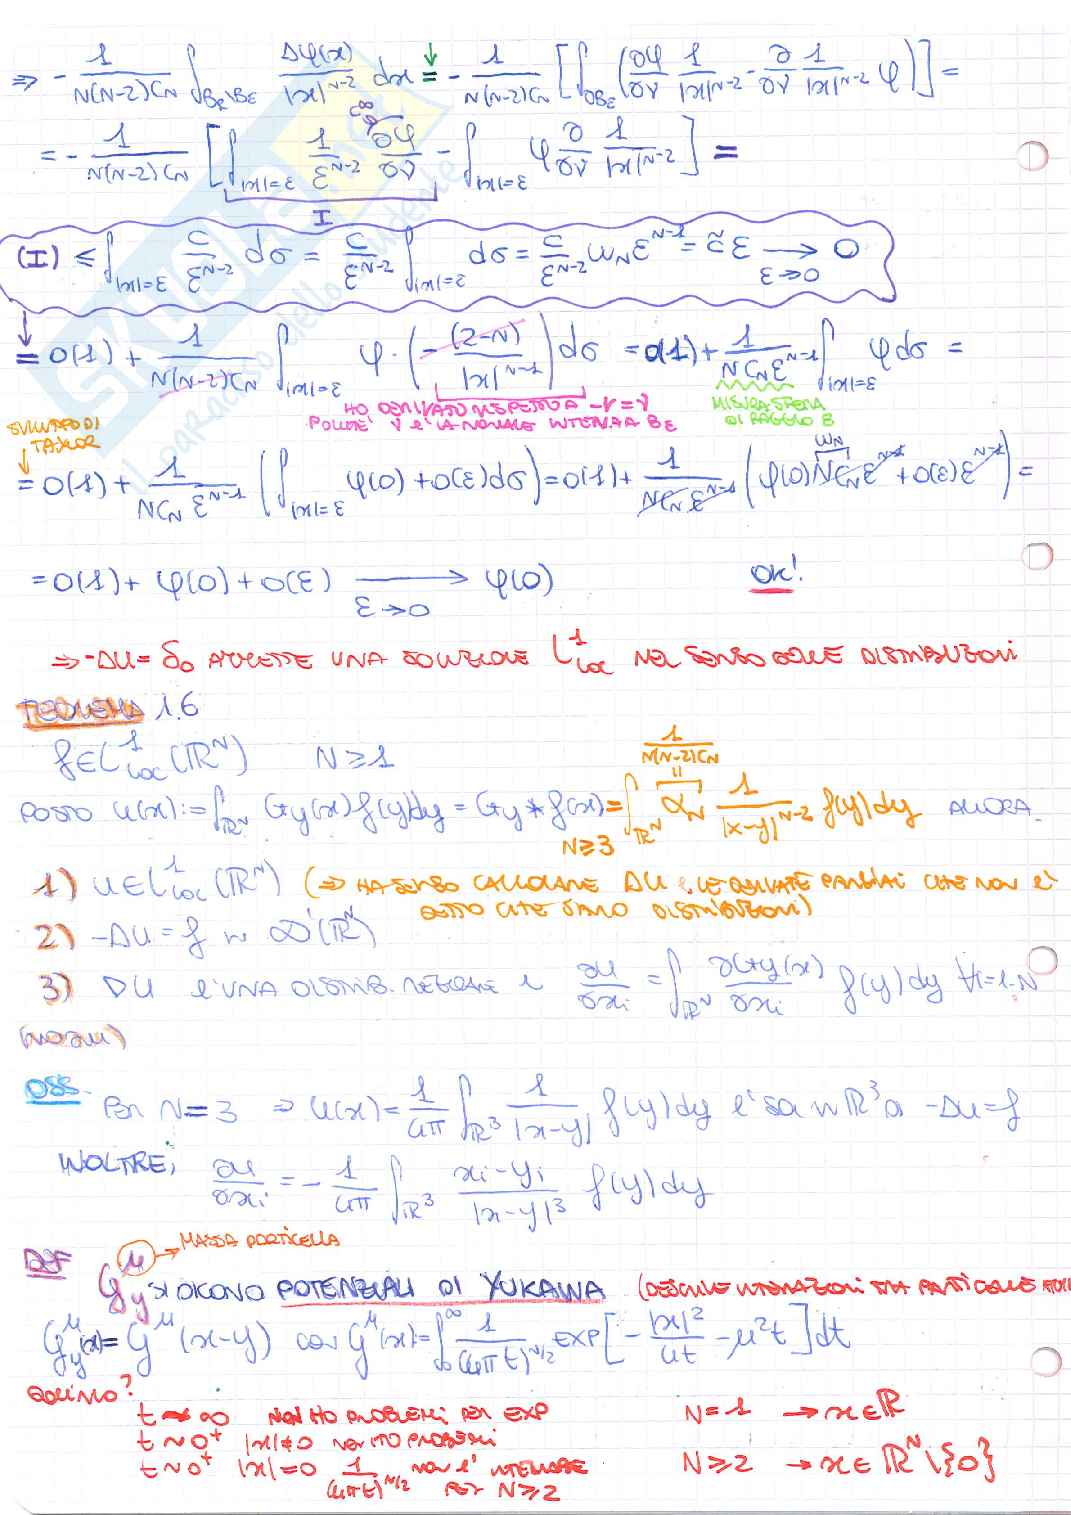 ⇒ - 1/(N(N-2)C_N) ∫_{B_R\B_ε} Δφ(x)/|x|^{N-2} dx = - 1/(N(N-2)C_N) [∫_{∂B_ε} (∂φ/∂ν 1/|x|^{N-2} - ∂/∂ν 1/|x|^{N-2} φ)] =
C_0^∞
= - 1/(N(N-2)C_N) [∫_{|x|=ε} 1/ε^{N-2} ∂φ/∂ν - ∫_{|x|=ε} φ ∂/∂ν 1/|x|^{N-2}] =
I
(I) ≤ ∫_{|x|=ε} C/ε^{N-2} dσ = C/ε^{N-2} ∫_{|x|=ε} dσ = C/ε^{N-2} ω_N ε^{N-1} = c̃ ε → 0
ε→0
= o(1) + 1/(N(N-2)C_N) ∫_{|x|=ε} φ · (- (2-N)/|x|^{N-1}) dσ = o(1) + 1/(N C_N ε^{N-1}) ∫_{|x|=ε} φ dσ =
HO DERIVATO RISPETTO A -ν = ν
MISURA SFERA
POICHE' ν E' LA NORMALE INTERNA A B_ε
DI RAGGIO ε
SVILUPPO DI
TAYLOR
ω_N
= o(1) + 1/(N C_N ε^{N-1}) (∫_{|x|=ε} φ(0) + O(ε) dσ) = o(1) + 1/(N C_N ε^{N-1}) (φ(0) N C_N ε^{N-1} + O(ε) ε^{N-1}) =
= o(1) + φ(0) + O(ε) → φ(0) OK!
ε→0
⇒ -Δu = δ_0 AMMETTE UNA SOLUZIONE L^1_loc NEL SENSO DELLE DISTRIBUZIONI
TEOREMA 1.6
f ∈ L^1_loc(ℝ^N) N ≥ 1
1/(N(N-2)C_N)
POSTO u(x) := ∫_{ℝ^N} G_y(x) f(y) dy = G_y * f(x) = ∫_{ℝ^N} α_N 1/|x-y|^{N-2} f(y) dy ALLORA
N≥3
1) u ∈ L^1_loc(ℝ^N) (⇒ HA SENSO CALCOLARE Δu E LE DERIVATE PARZIALI CHE NON E'
DETTO CHE SIANO DISTRIBUZIONI)
2) -Δu = f in D'(ℝ^N)
3) Du E' UNA DISTRIB. REGOLARE E ∂u/∂x_i = ∫_{ℝ^N} ∂G_y(x)/∂x_i f(y) dy ∀i=1..N
OSS. PER N=3 ⇒ u(x) = 1/4π ∫_{ℝ^3} 1/|x-y| f(y) dy E' SOL IN ℝ^3 DI -Δu = f
INOLTRE, ∂u/∂x_i = - 1/4π ∫_{ℝ^3} (x_i - y_i)/|x-y|^3 f(y) dy
→ MASSA PARTICELLA
DEF G_y^μ SI DICONO POTENZIALI DI YUKAWA (DESCRIVE INTERAZIONI TRA PARTICELLE
G_y^μ(x) = G^μ(x-y) con G^μ(x) = ∫_0^∞ 1/(4πt)^{N/2} EXP[- |x|^2/4t - μ^2 t] dt
t ~ ∞ NON HO PROBLEMI PER EXP N=1 → x∈ℝ
t ~ 0^+ |x|≠0 NON HO PROBLEMI
t ~ 0^+ |x|=0 1/(4πt)^{N/2} NON E' INTEGRABILE PER N≥2 N≥2 → x∈ℝ^N\{0}